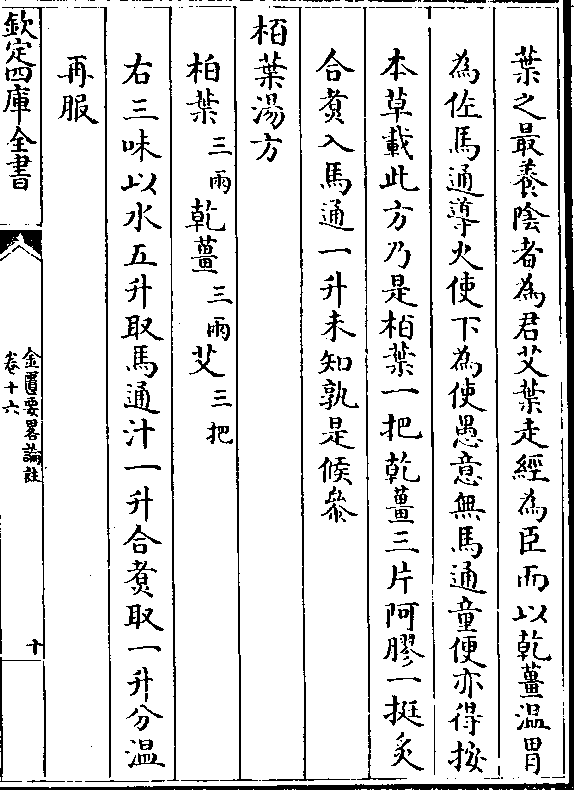 葉之最養陰者為君艾葉走經為臣而以乾薑温胃
為佐馬通導火使下為使愚意無馬通童便亦得按
本草載此方乃是栢葉一把乾薑三片阿膠一挺炙
合煑入馬通一升未知孰是候叅
栢葉湯方
柏葉三兩乾薑三兩艾三把
右三味以水五升取馬通汁一升合煑取一升分温
再服
欽定四庫全書
金匱要畧論註
卷十六
十